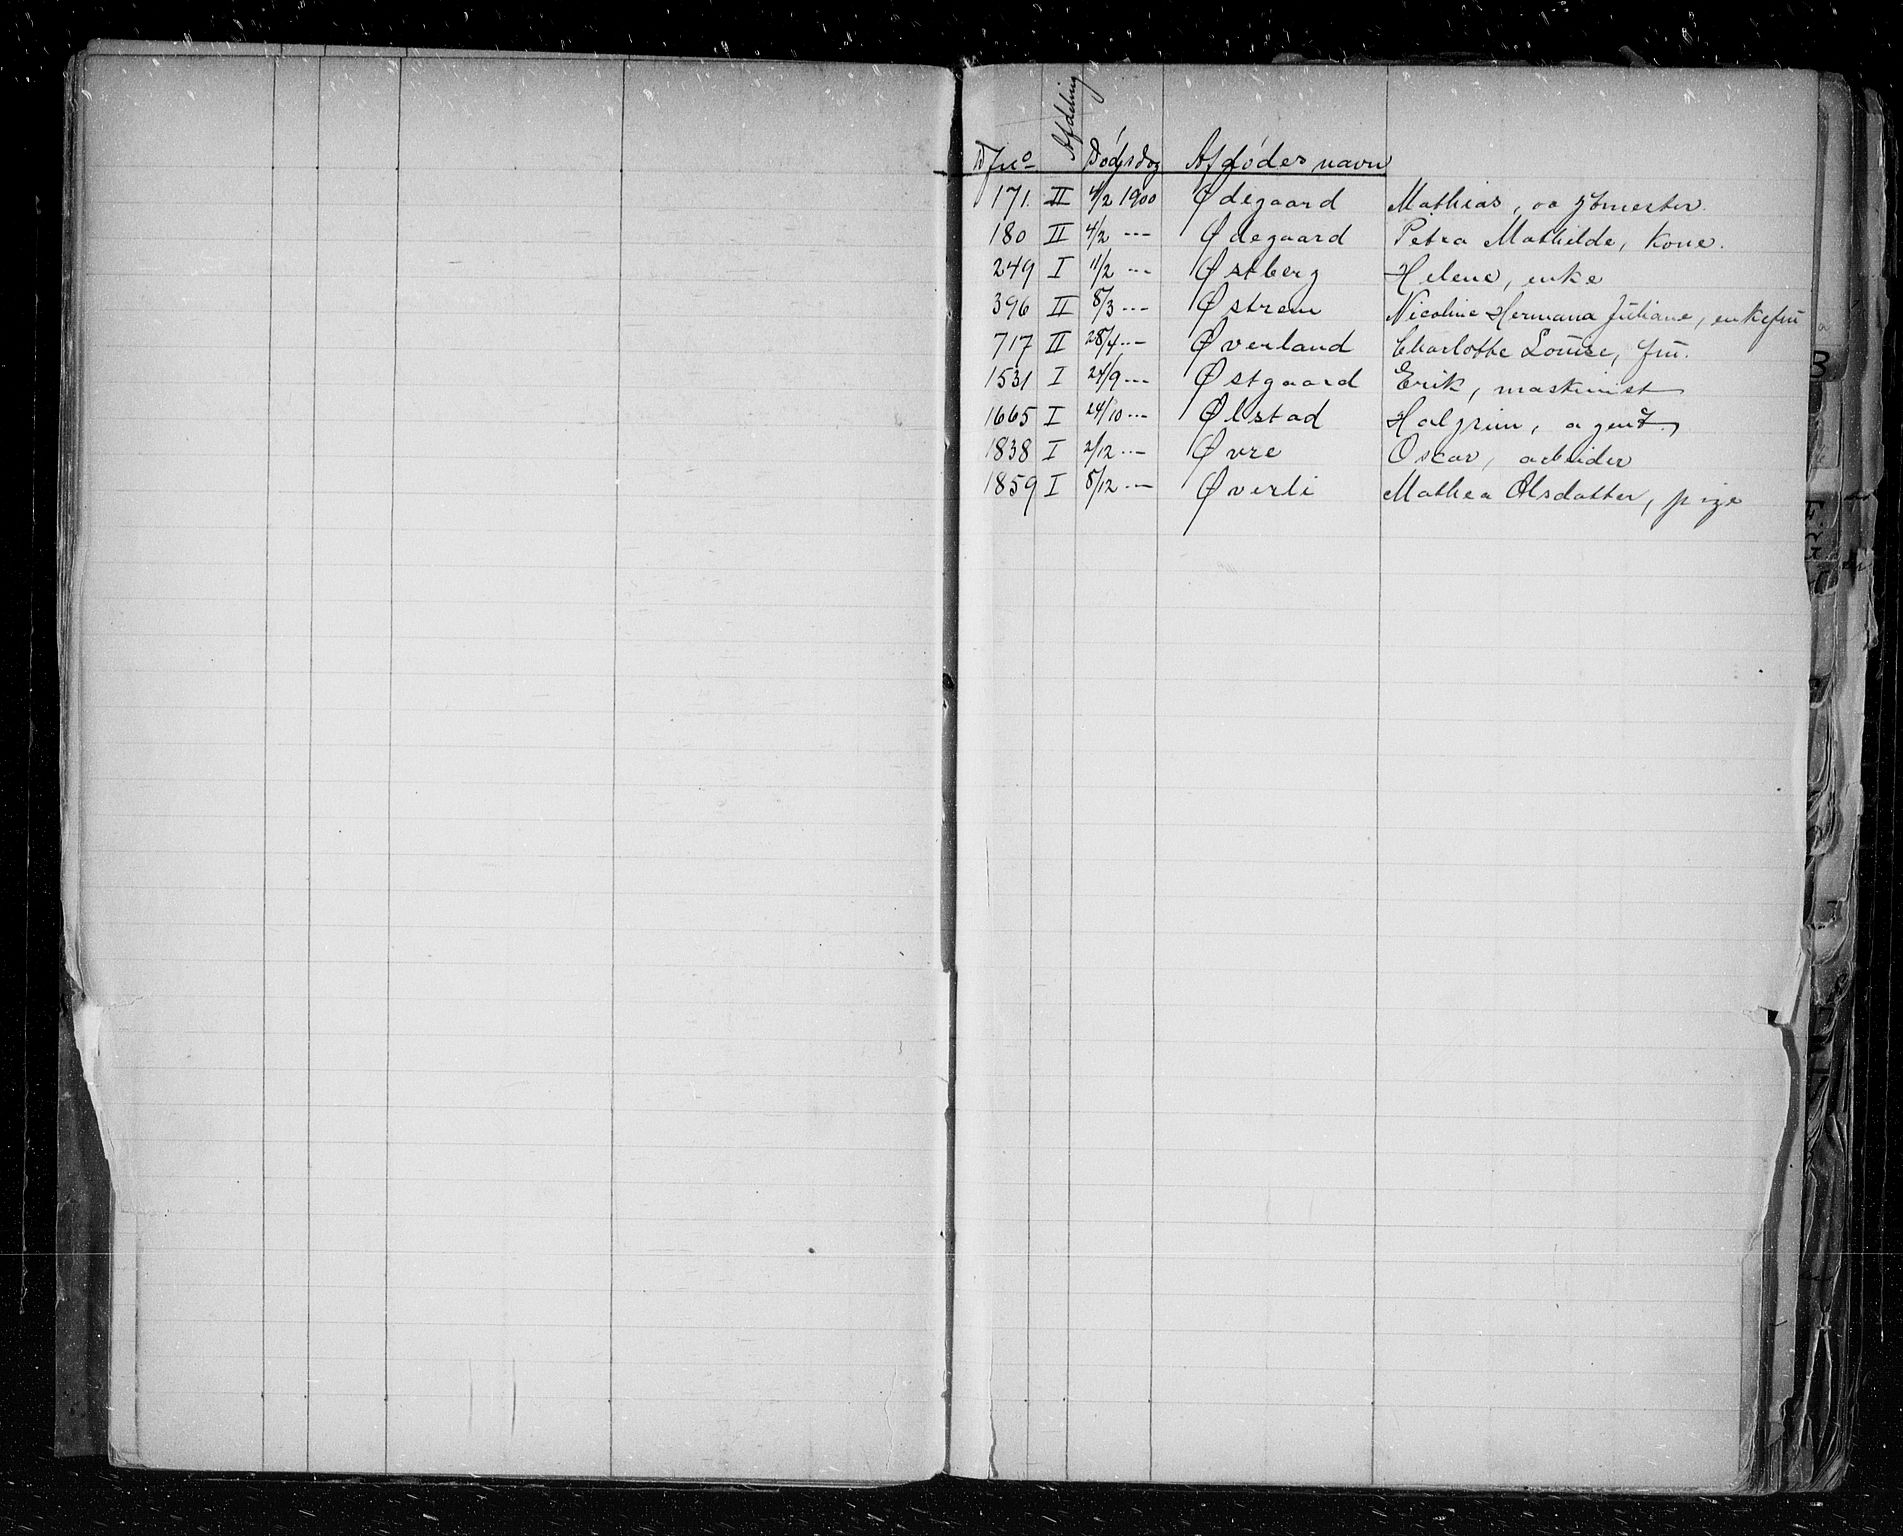 Afdeling
D/No Dødsdag Afdødes navn
171. II 4/2 1900 Ødegaard Mathias, vagtmester.
180 II 4/2 --- Ødegaard Petra Mathilde, kone.
249 I 11/2 --- Østberg Helene, enke
396 II 8/3 --- Østrem Nicoline Hermana Juliane, enkefru
717 II 28/4 --- Øverland Charlotte Louise, fru.
1531 I 24/9 --- Østgaard Erik, maskinist
1665 I 24/10 --- Ølstad Halgrim, agent.
1838 I 2/12 --- Øvre Oscar, arbeider
1859 I 5/12 --- Øverli Mathea Olsdatter, pige